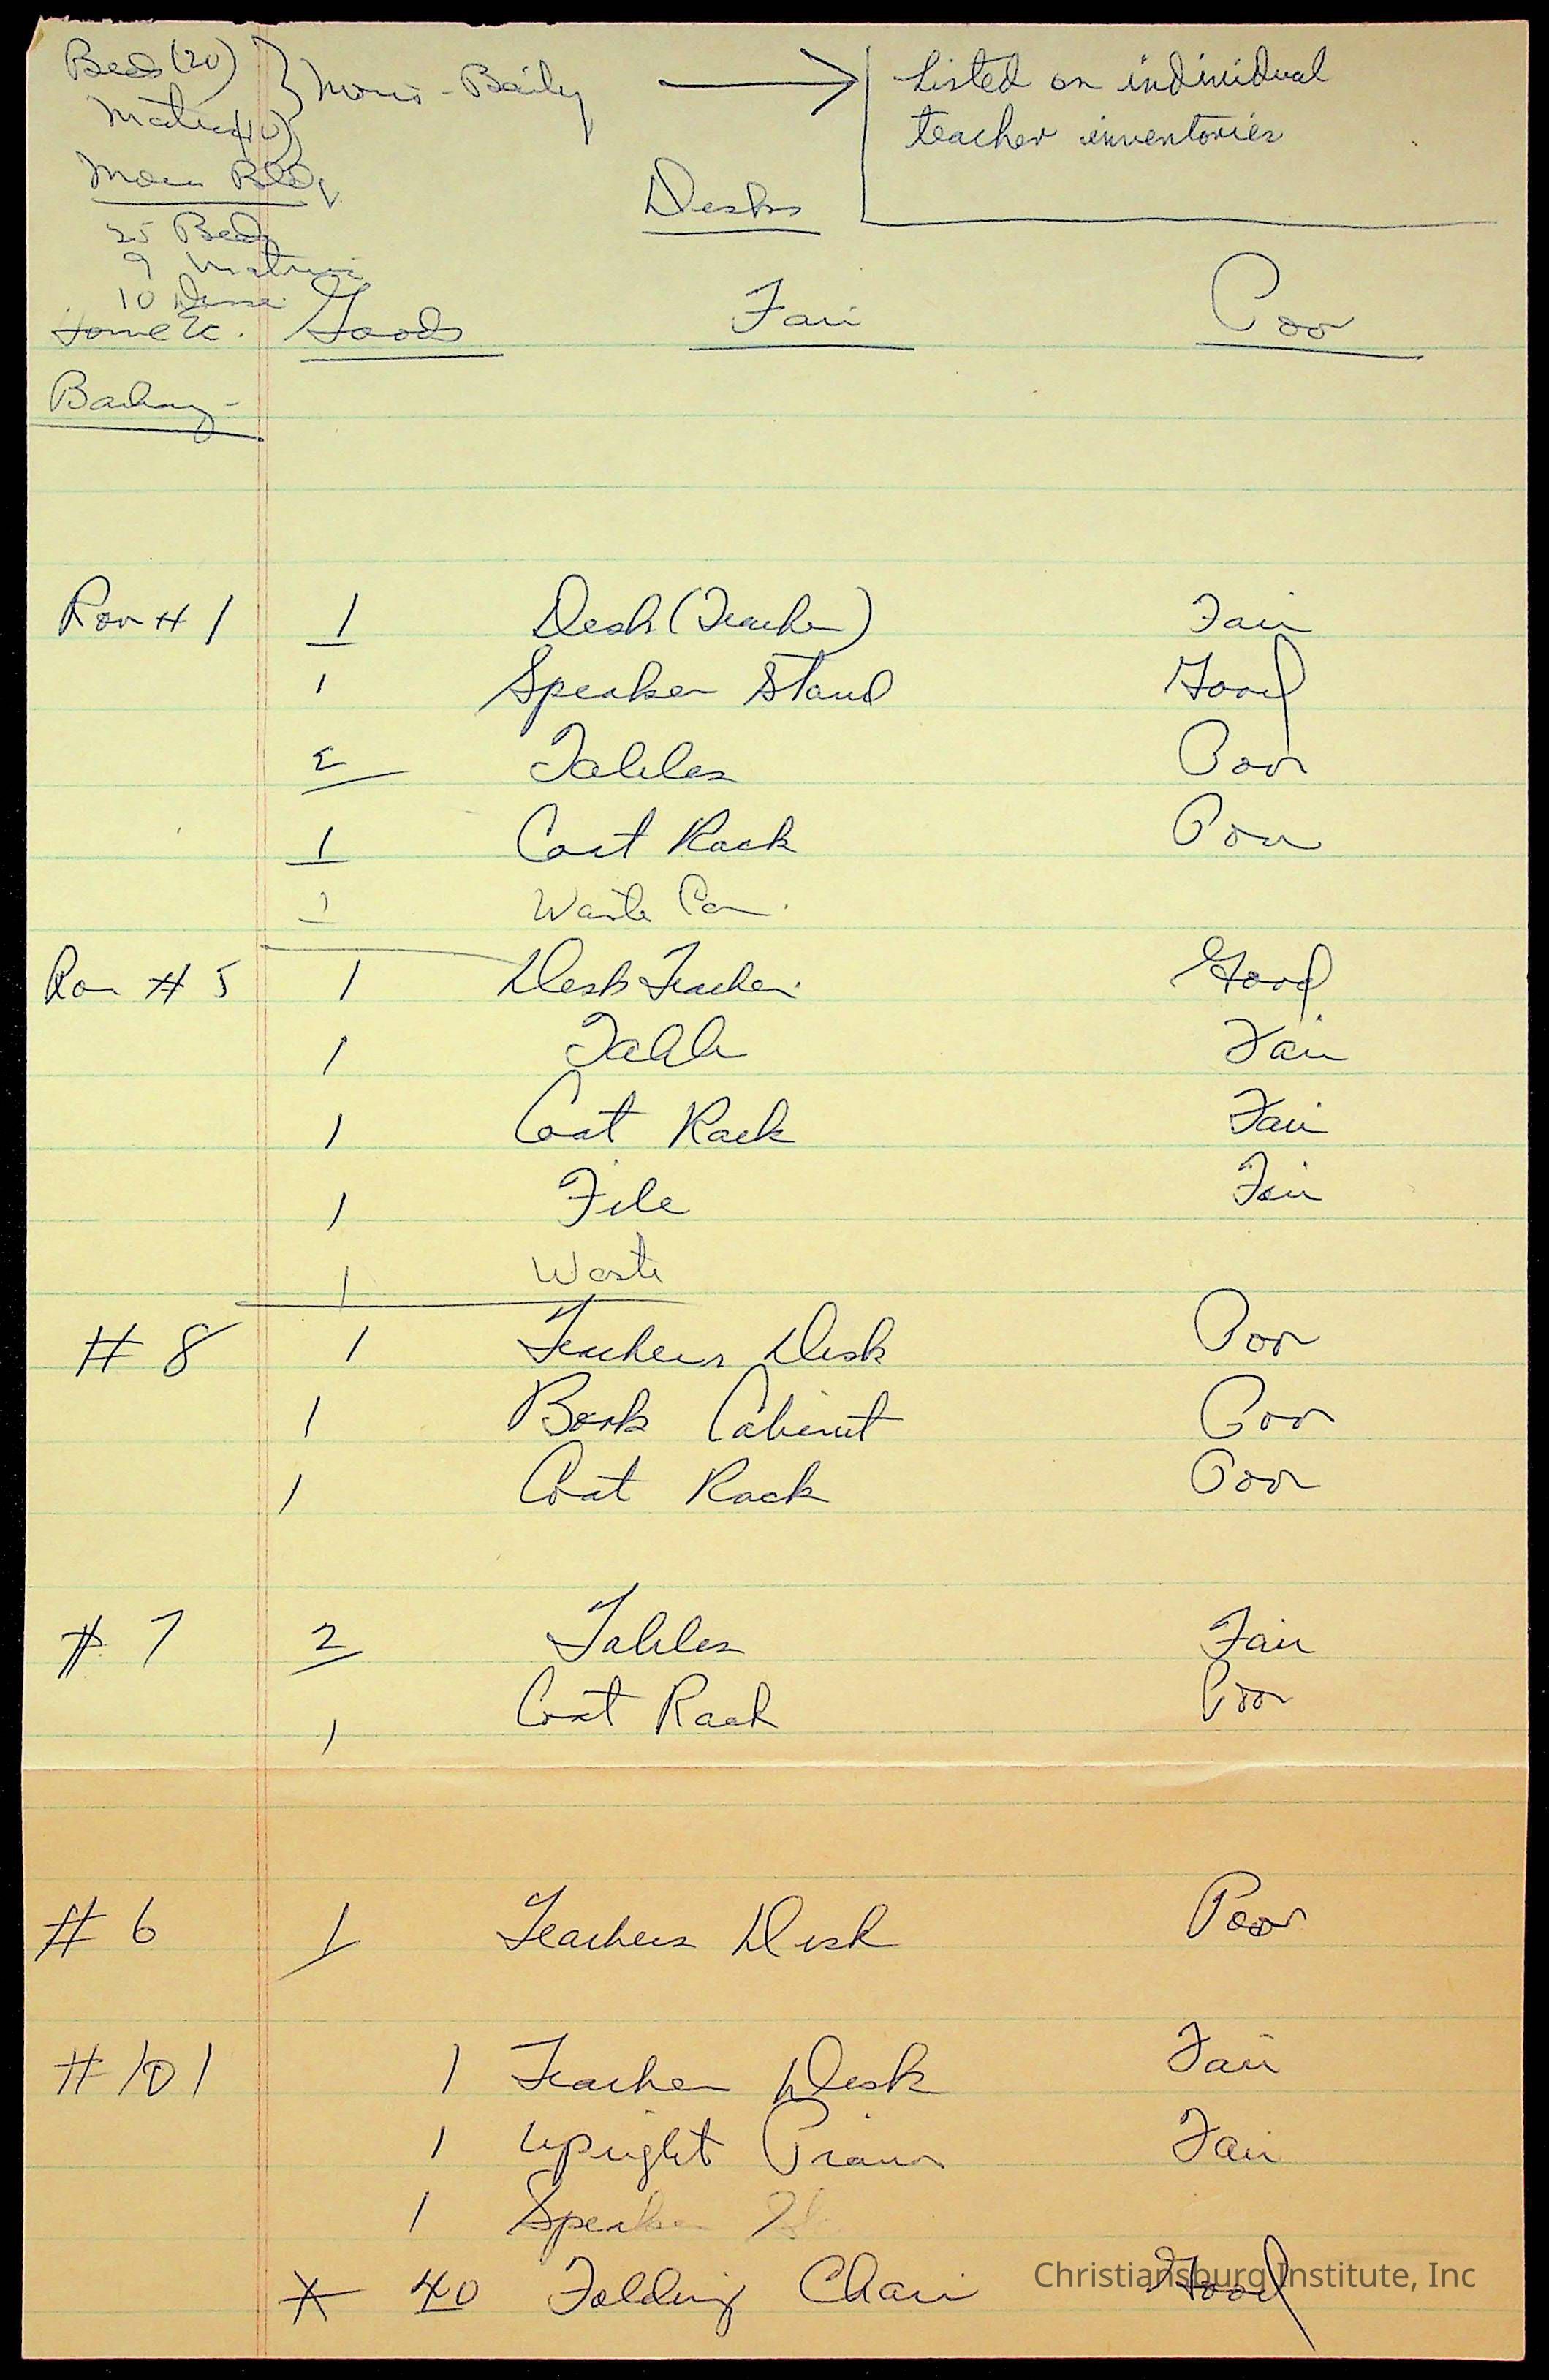 Beds (20)
Morris-Baily
Listed on individual
teacher inventories
Main Bldg.
Desks
25 Beds
9
10
Home Ec. Goods Fair Poor
Rom # 1 1 Desk (Teacher) Fair
1 Speaker Stand Good
2 Tables Poor
1 Coat Rack Poor
1 Waste Can.
Rom # 5 1 Desk Teacher. Good
1 Table Fair
1 Coat Rack Fair
1 File Fair
1 Waste
# 8 1 Teachers Desk Poor
1 Book Cabinet Poor
1 Coat Rack Poor
# 7 2 Tables Fair
1 Coat Rack Poor
# 6 1 Teachers Desk Poor
# 101 1 Teacher Desk Fair
1 Upright Piano Fair
1 Speaker
* 40 Folding Chair Good
Christiansburg Institute, Inc